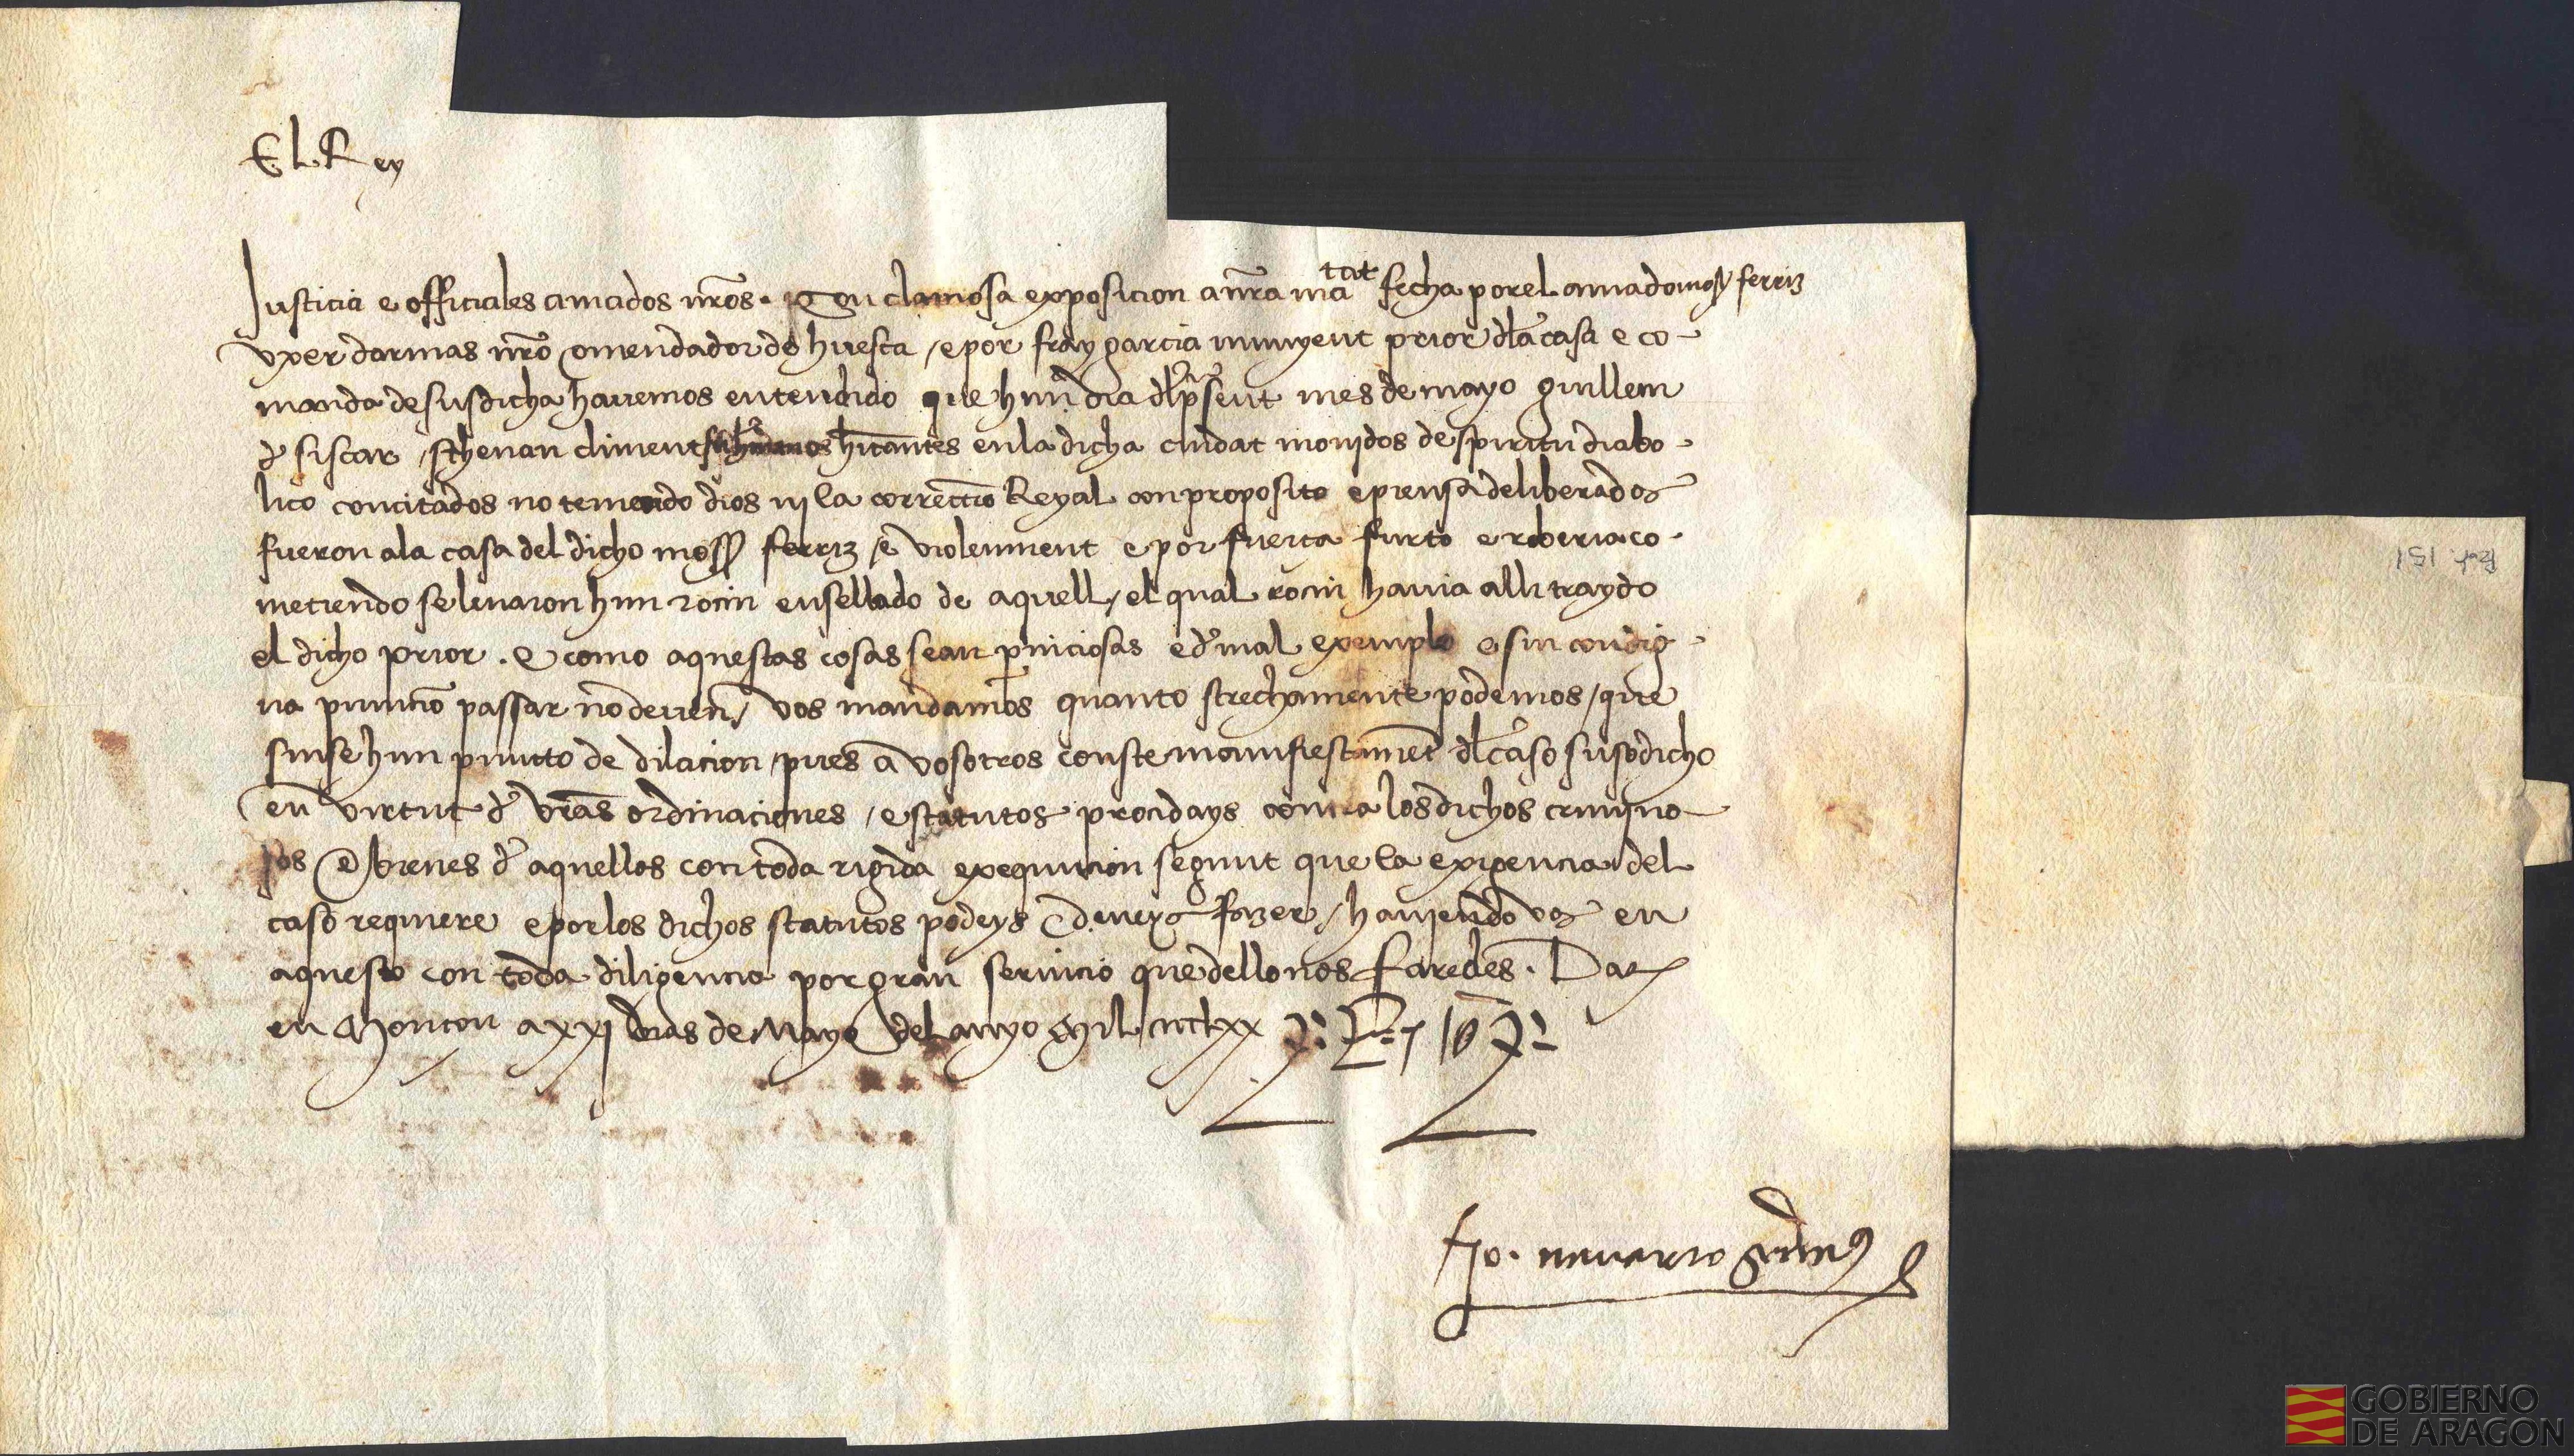 El Rey
Justicia e officiales amados nr̃os. Con clamosa exposicion a nr̃a ma^tat fecha por el amado moss ferriz
vxer darmas nr̃o comendador de huesca / e por fray garcia munyent prior dla casa e co-
manda desusdicha hauemos entendido que hun dia dl pñsent mes de mayo guillem
de siscar / sthevan climent hitantes en la dicha ciudat mouidos de spiritu diabo-
lico concitados no temiendo dios ni la correctiõ Reyal con proposito e piensa deliberados
fueron a la casa del dicho moss ferriz / e violenment e por fuerca furto e roberia co-
metiendo se leuaron hun rocin ensellado de aquell / el qual rocin hauia alli traydo
el dicho prior. E como aquestas cosas sean pniciosas e de mal exemplo e sin condig-
na puniciõ passar nõ deuen / vos mandamos quanto strechamente podemos / que
sinse hun punto de dilacion / pues a vosotros conste manifiestament dl caso susodicho
en virtut de vr̃as ordinaciones / e statutos procidays contra los dichos crimino-
sos e bienes de aquellos con toda rigida exequucion segunt que la exigencia del
caso requiere e por los dichos statutos podeys e deueys fazer / hauiendo vos en
aquesto con toda diligencia por gran seruicio que dello nos faredes. Dat
en Monçon a xxj dias de Mayo del anyo Mil cccclxx
Jo. nauarro
Perg. 151
GOBIERNO
DE ARAGON